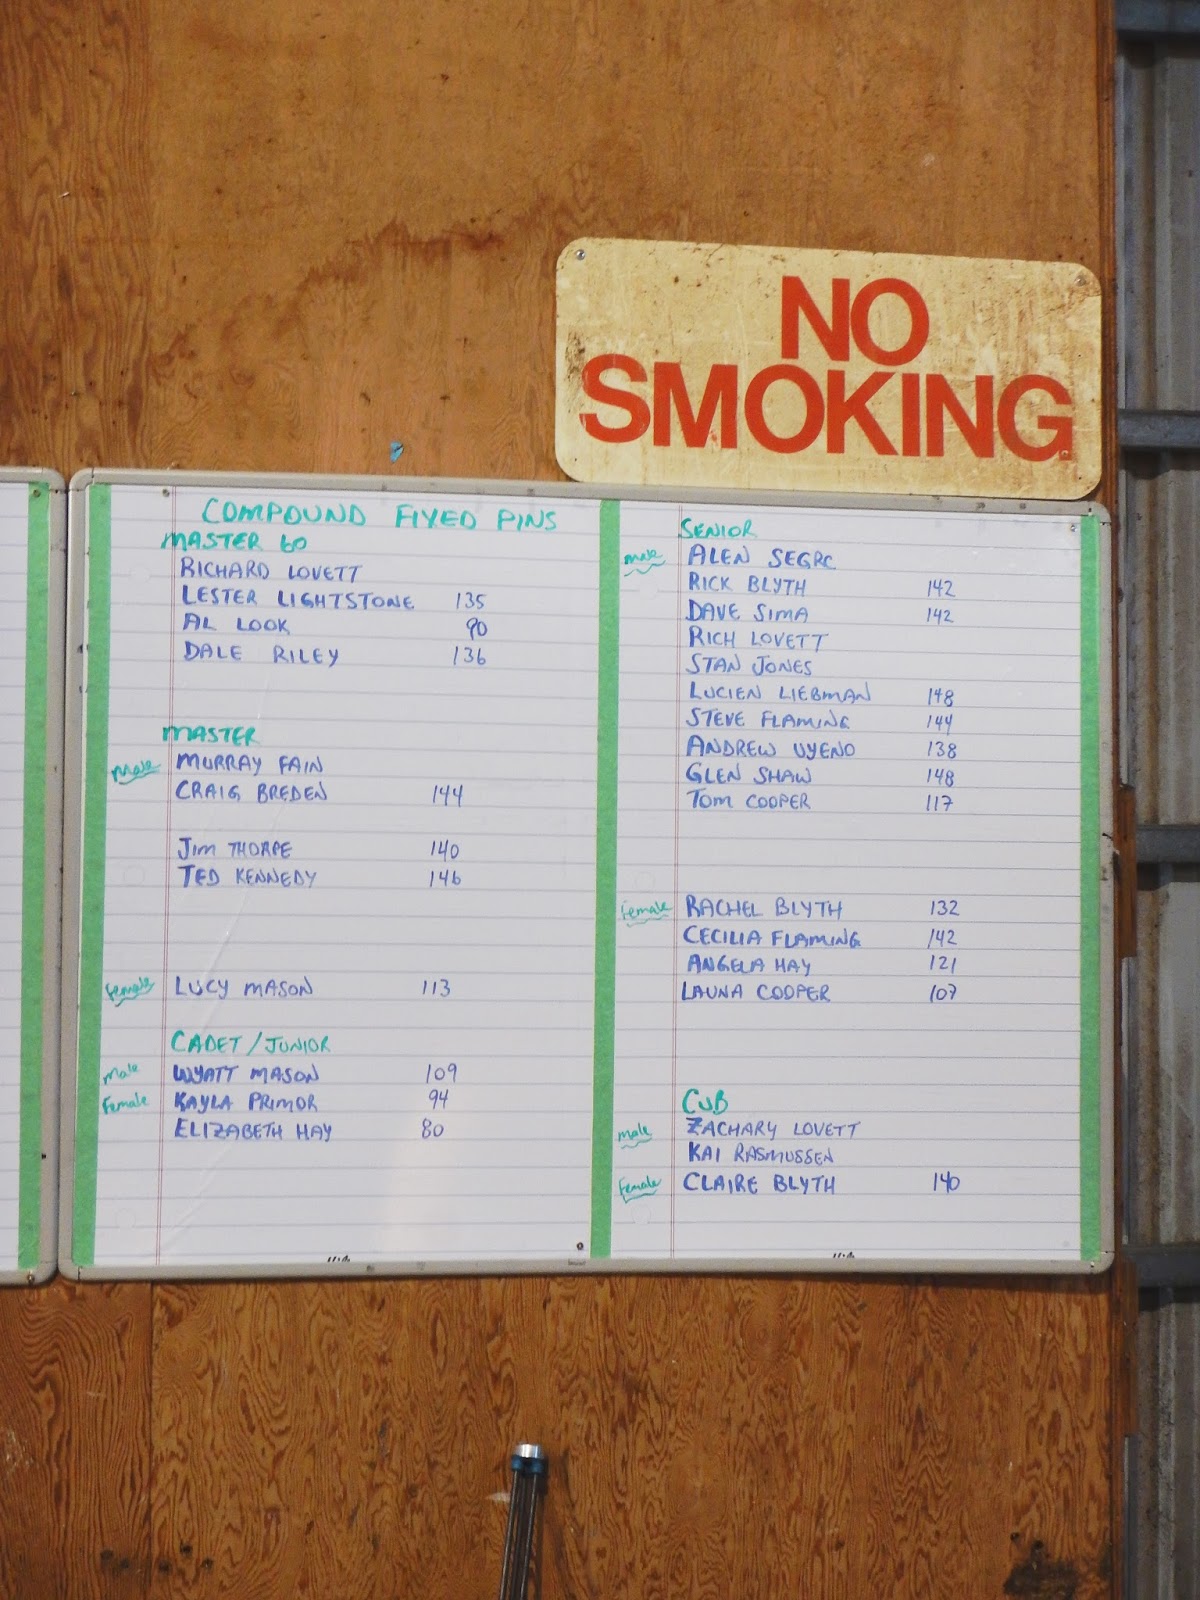 NO
SMOKING
COMPOUND FIXED PINS
MASTER 60
RICHARD LOVETT
LESTER LIGHTSTONE 135
AL LOOK 90
DALE RILEY 136
MASTER
male MURRAY FAIN
CRAIG BREDEN 144
JIM THORPE 140
TED KENNEDY 146
Female LUCY MASON 113
CADET/JUNIOR
Male WYATT MASON 109
Female KAYLA PRIMOR 94
ELIZABETH HAY 80
SENIOR
male ALEN SEGRC
RICK BLYTH 142
DAVE SIMA 142
RICH LOVETT
STAN JONES
LUCIEN LIEBMAN 148
STEVE FLAMING 144
ANDREW UYENO 138
GLEN SHAW 148
TOM COOPER 117
Female RACHEL BLYTH 132
CECILIA FLAMING 142
ANGELA HAY 121
LAUNA COOPER 107
CUB
male ZACHARY LOVETT
KAI RASMUSSEN
Female CLAIRE BLYTH 140